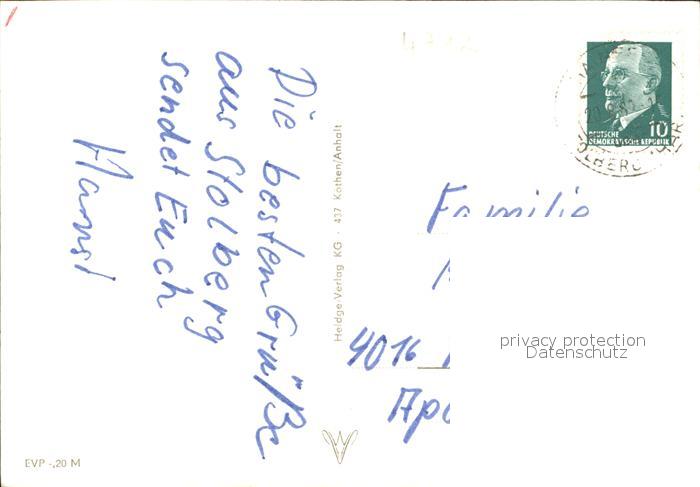 Die besten Grüße
aus Stolberg
sendet Euch
Hansi
Heldge-Verlag KG · 437 Köthen/Anhalt
EVP -,20 M
DEUTSCHE
DEMOKRATISCHE REPUBLIK
10
Familie
4016
privacy protection
Datenschutz